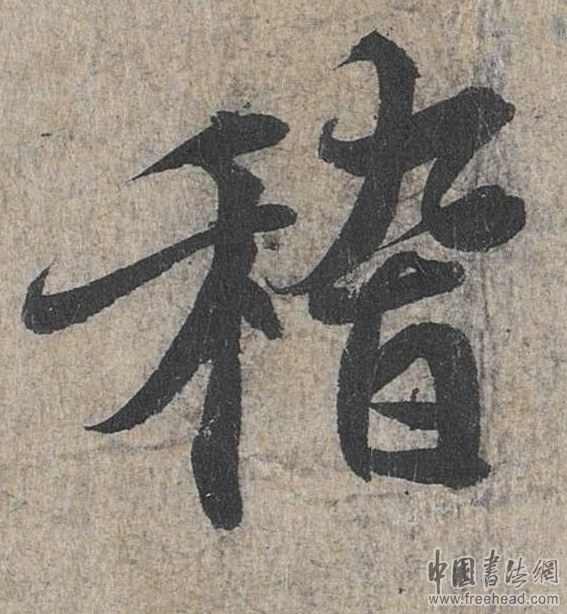 稽
中国书法網
www.freehead.com